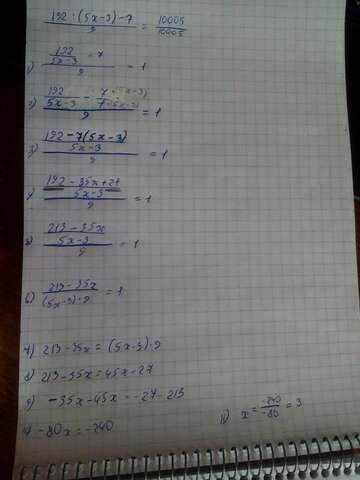 192 : (5x-3) - 7 / 9 = 10005 / 10005
1) 192 / 5x-3 - 7 / 9 = 1
2) 192 / 5x-3 - 7·(5x-3) / 9 = 1
3) 192 - 7(5x-3) / 5x-3 / 9 = 1
192 - 35x + 21 / 5x-3 / 9 = 1
213 - 35x / 5x-3 / 9 = 1
6) 213 - 35x / (5x-3)·9 = 1
7) 213 - 35x = (5x-3)·9
8) 213 - 35x = 45x - 27
9) -35x - 45x = -27 - 213
-80x = -240
11) x = -240 / -80 = 3